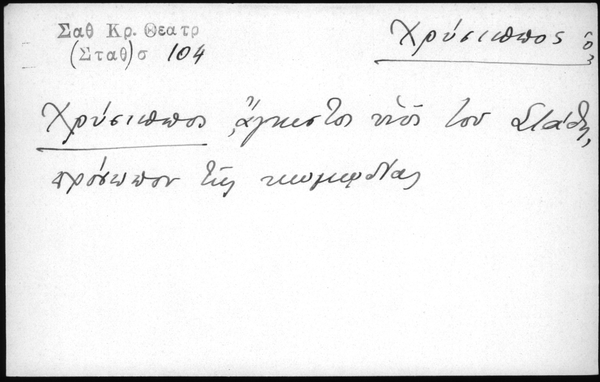 Σαθ Κρ. Θεατρ
(Σταθ)σ 104
Χρύσιππος ὁ
Χρύσιππος, ἄγνωστος υἱὸς τοῦ Στάθη,
πρόσωπον τῆς κωμῳδίας